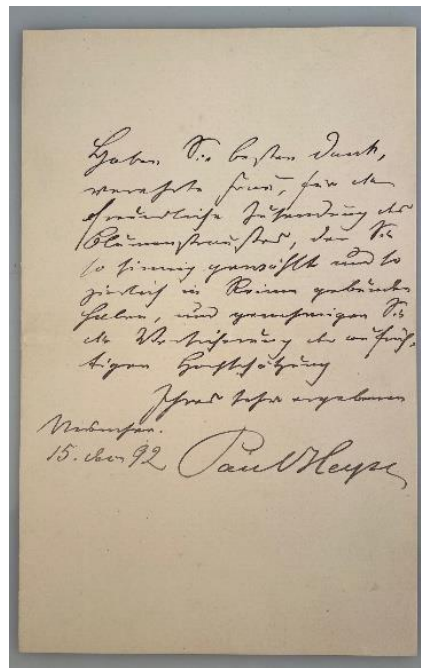 Haben Sie besten Dank,
verehrte Frau, für die
freundliche Zusendung des
Blumenstraußes, den Sie
so sinnig gewählt und so
zierlich in Reime gebunden
haben, und genehmigen Sie
die Versicherung der aufrich-
tigen Hochschätzung
Ihres sehr ergebenen
München.
15. 92 Paul Heyse